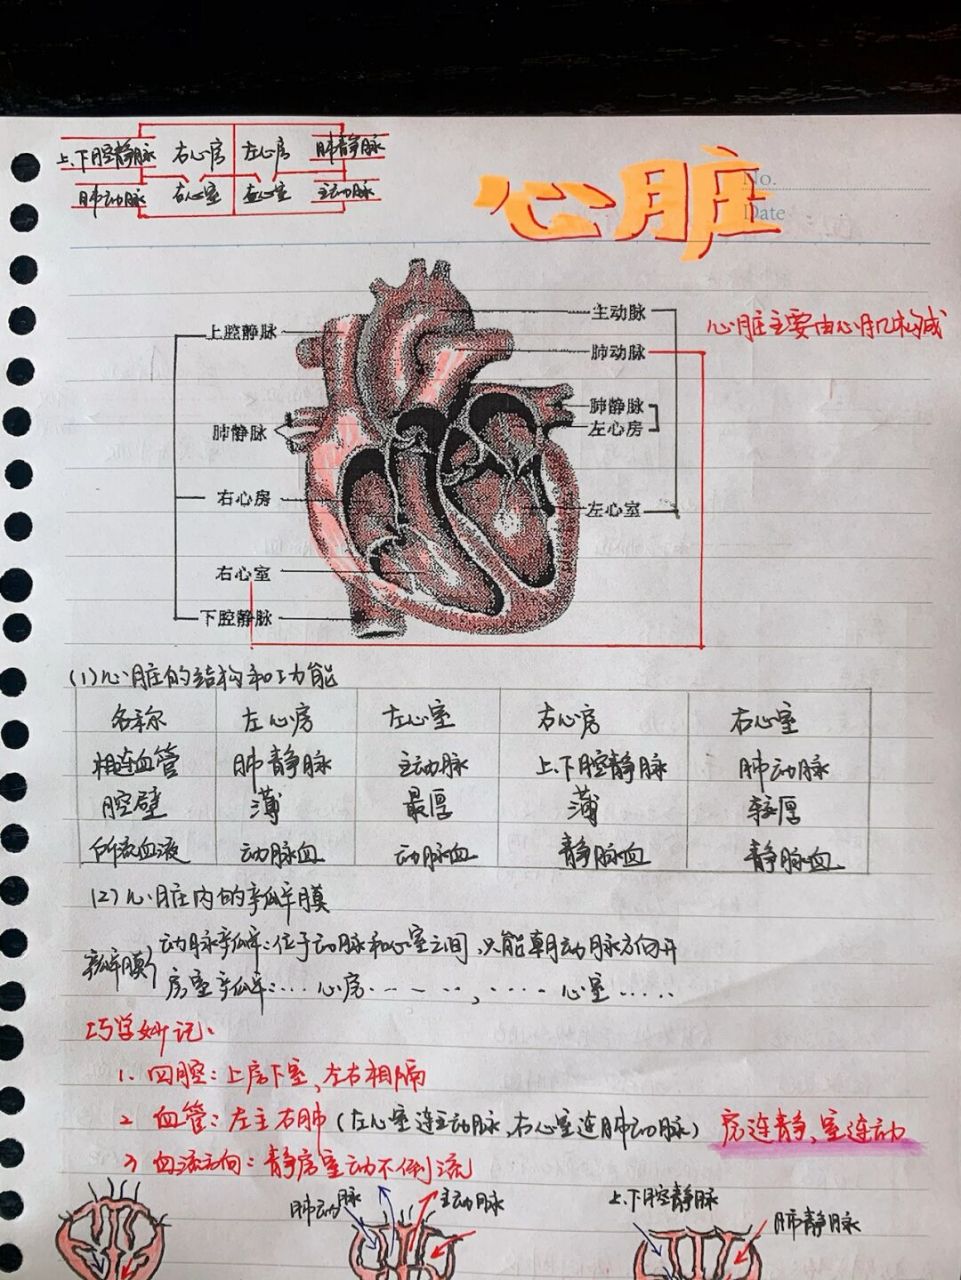 上、下腔静脉 右心房 左心房 肺静脉
肺动脉 右心室 左心室 主动脉
No.
Date
心脏
心脏主要由心肌构成
主动脉
上腔静脉
肺动脉
肺静脉
左心房
肺静脉
右心房
左心室
右心室
下腔静脉
(1)心脏的结构和功能
名称 左心房 左心室 右心房 右心室
相连血管 肺静脉 主动脉 上、下腔静脉 肺动脉
腔壁 薄 最厚 薄 较厚
所流血液 动脉血 动脉血 静脉血 静脉血
(2)心脏内的瓣膜
瓣膜{动脉瓣:位于动脉和心室之间,只能朝动脉方向开
房室瓣:····心房·····,····心室·····
巧学妙记:
1. 四腔:上房下室、左右相隔
2 血管:左主右肺(左心室连主动脉,右心室连肺动脉) 房连静,室连动
3 血流方向:静房室动不倒流
肺动脉 主动脉 上、下腔静脉 肺静脉